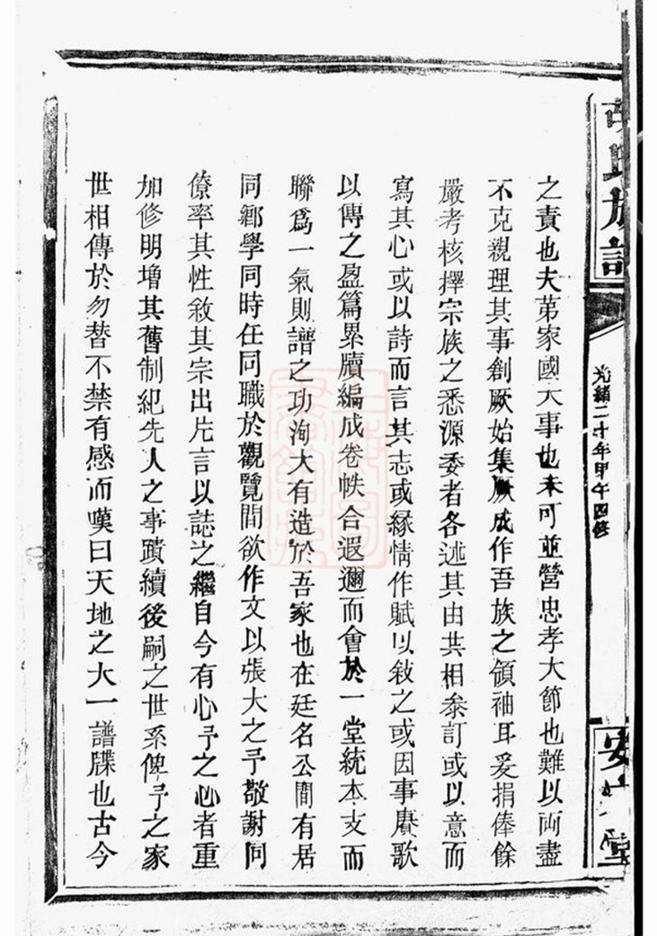 胡氏族譜
光緒二十年甲午四修
安堂
之責也夫第家國大事也未可並營忠孝大節也難以両盡
不克親理其事創厥始集厥成作吾族之領袖耳爰捐俸餘
嚴考核擇宗族之悉源委者各述其由共相叅訂或以意而
寫其心或以詩而言其志或緣情作賦以敍之或因事賡歌
以傳之盈篇累牘編成卷帙合遐邇而會於一堂統本支而
聯爲一氣則譜之功洵大有造於吾家也在廷名公間有居
同鄉學同時任同職於觀覽間欲作文以張大之予敬謝同
僚率其性敘其宗出片言以誌之繼自今有心予之心者重
加修明增其舊制紀先人之事蹟續後嗣之世系俾予之家
世相傳於勿替不禁有感而嘆曰天地之大一譜牒也古今